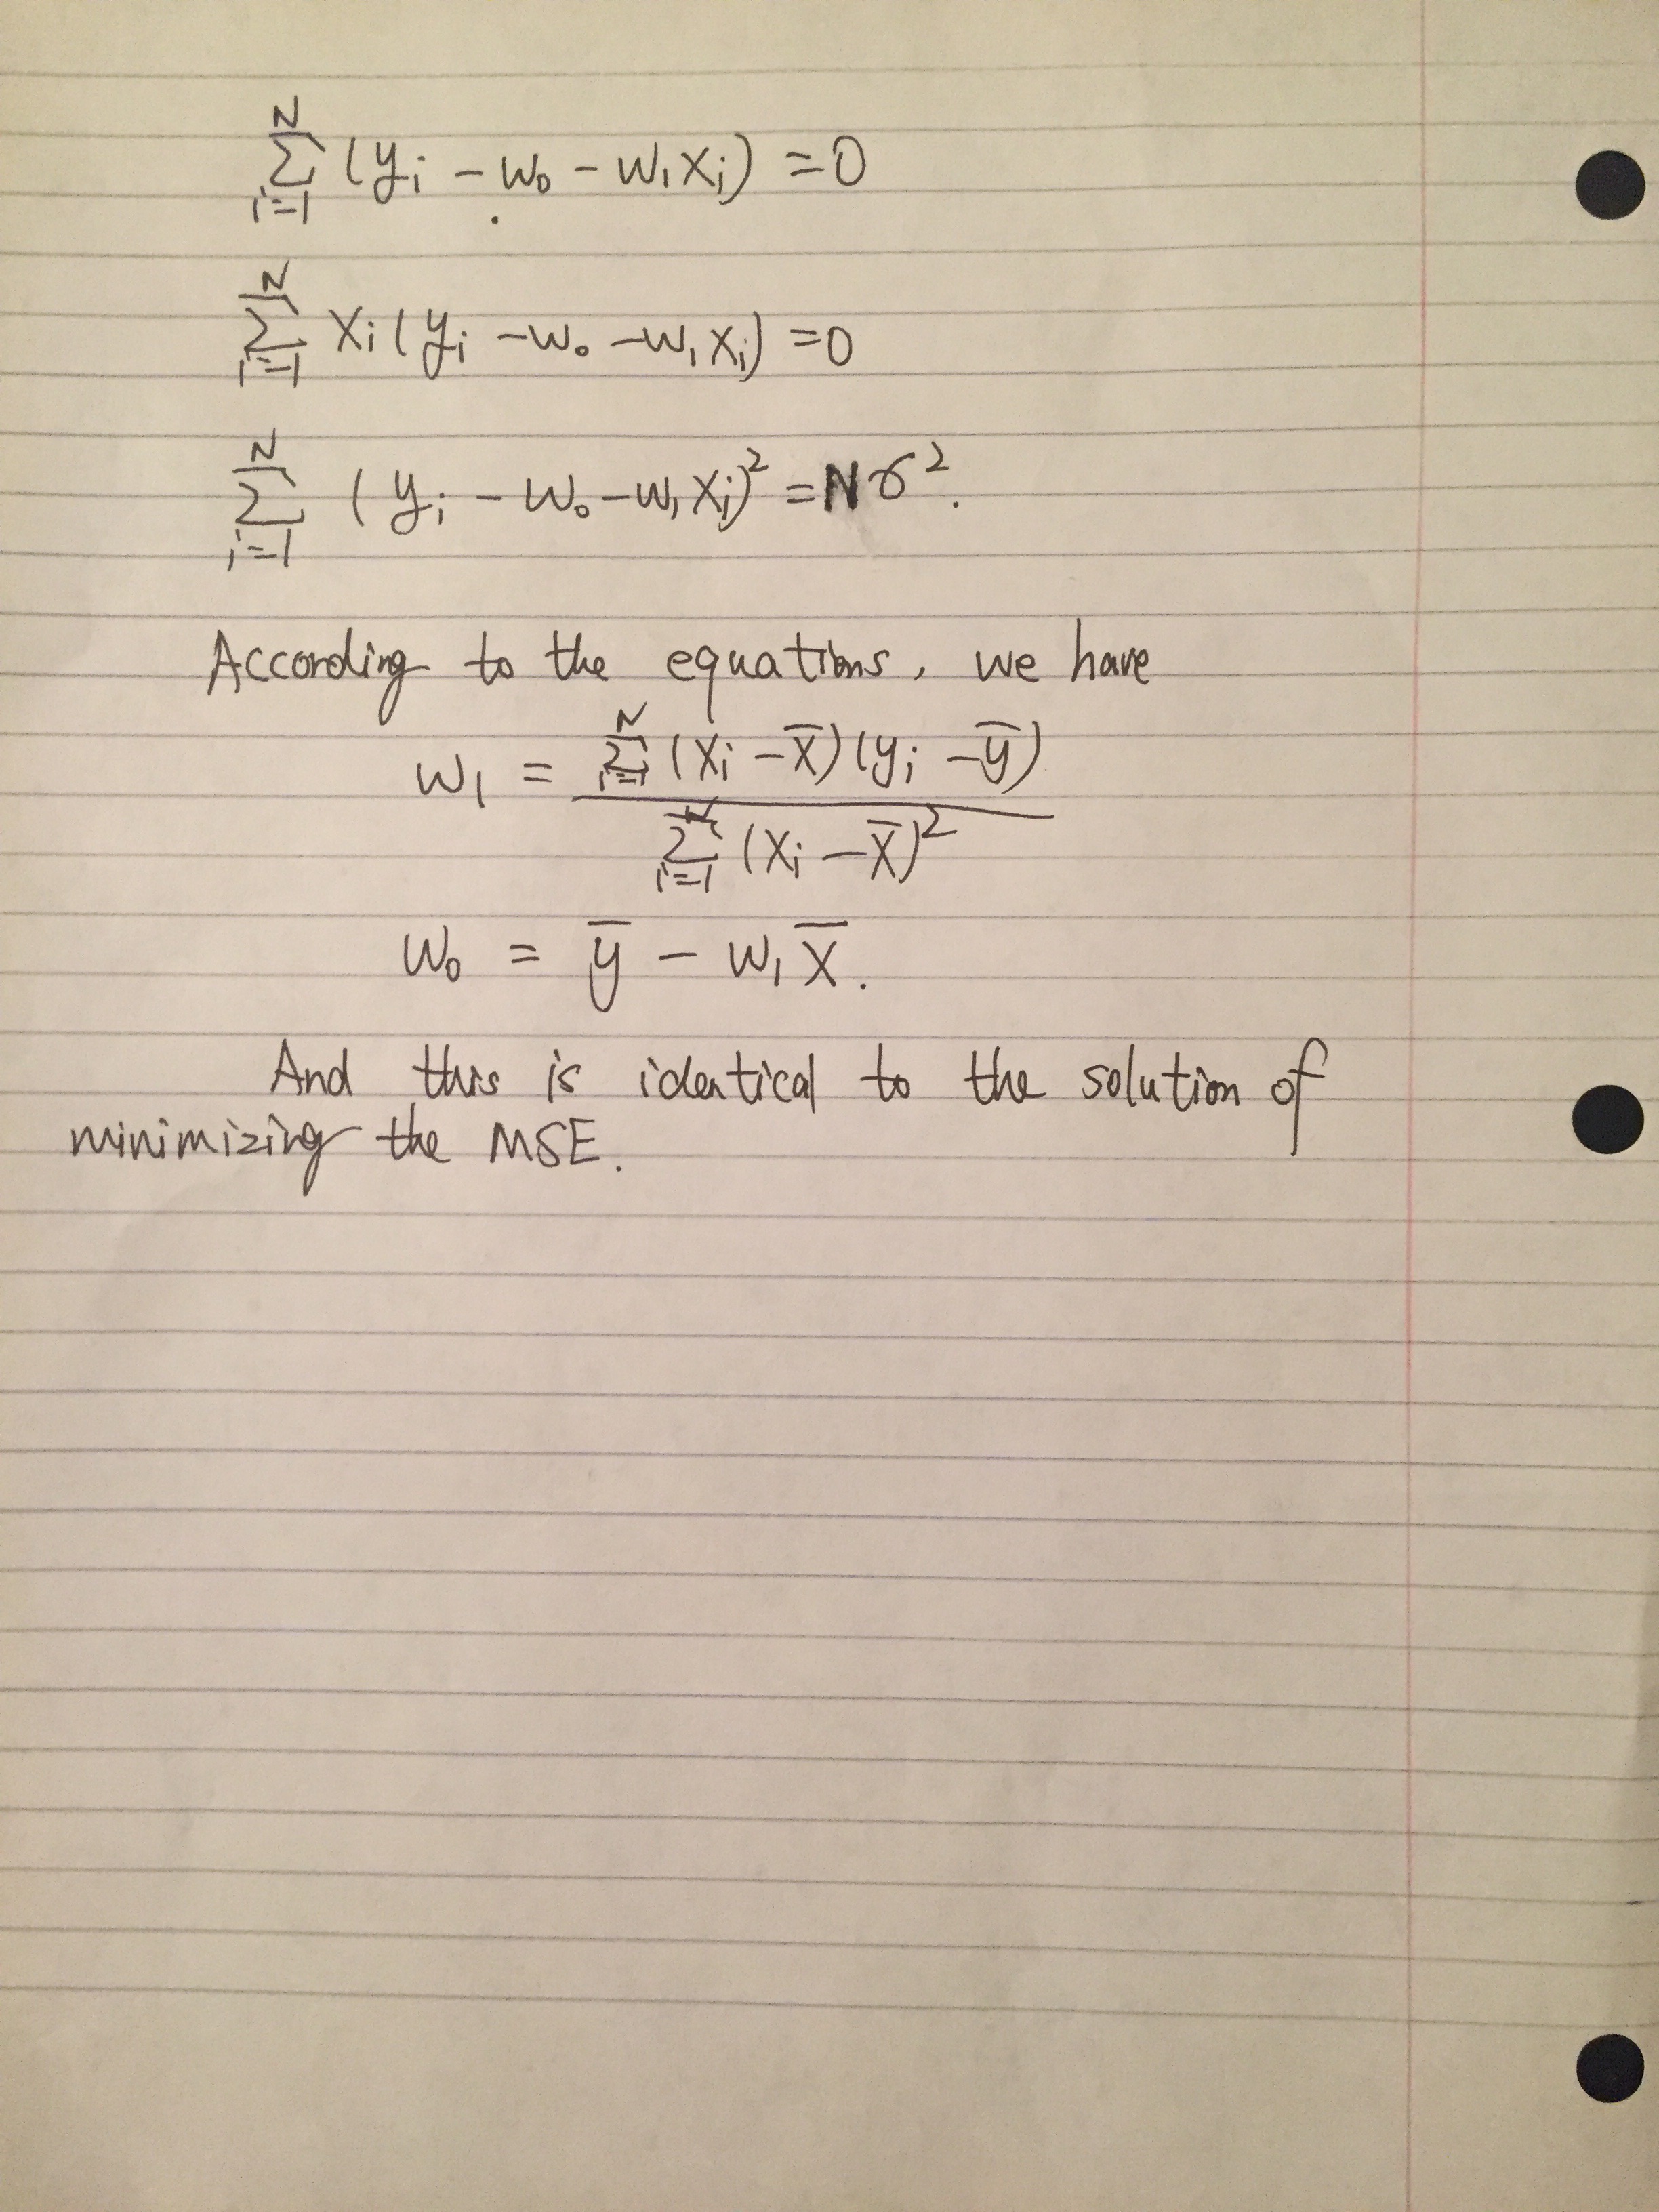 ∑_{i=1}^{N} (y_i - w_0 - w_1 x_i) = 0
∑_{i=1}^{N} x_i (y_i - w_0 - w_1 x_i) = 0
∑_{i=1}^{N} (y_i - w_0 - w_1 x_i)^2 = Nσ^2.
According to the equations, we have
w_1 = \frac{∑_{i=1}^{N} (x_i - \bar{x})(y_i - \bar{y})}{∑_{i=1}^{N} (x_i - \bar{x})^2}
w_0 = \bar{y} - w_1 \bar{x}.
And this is identical to the solution of
minimizing the MSE.